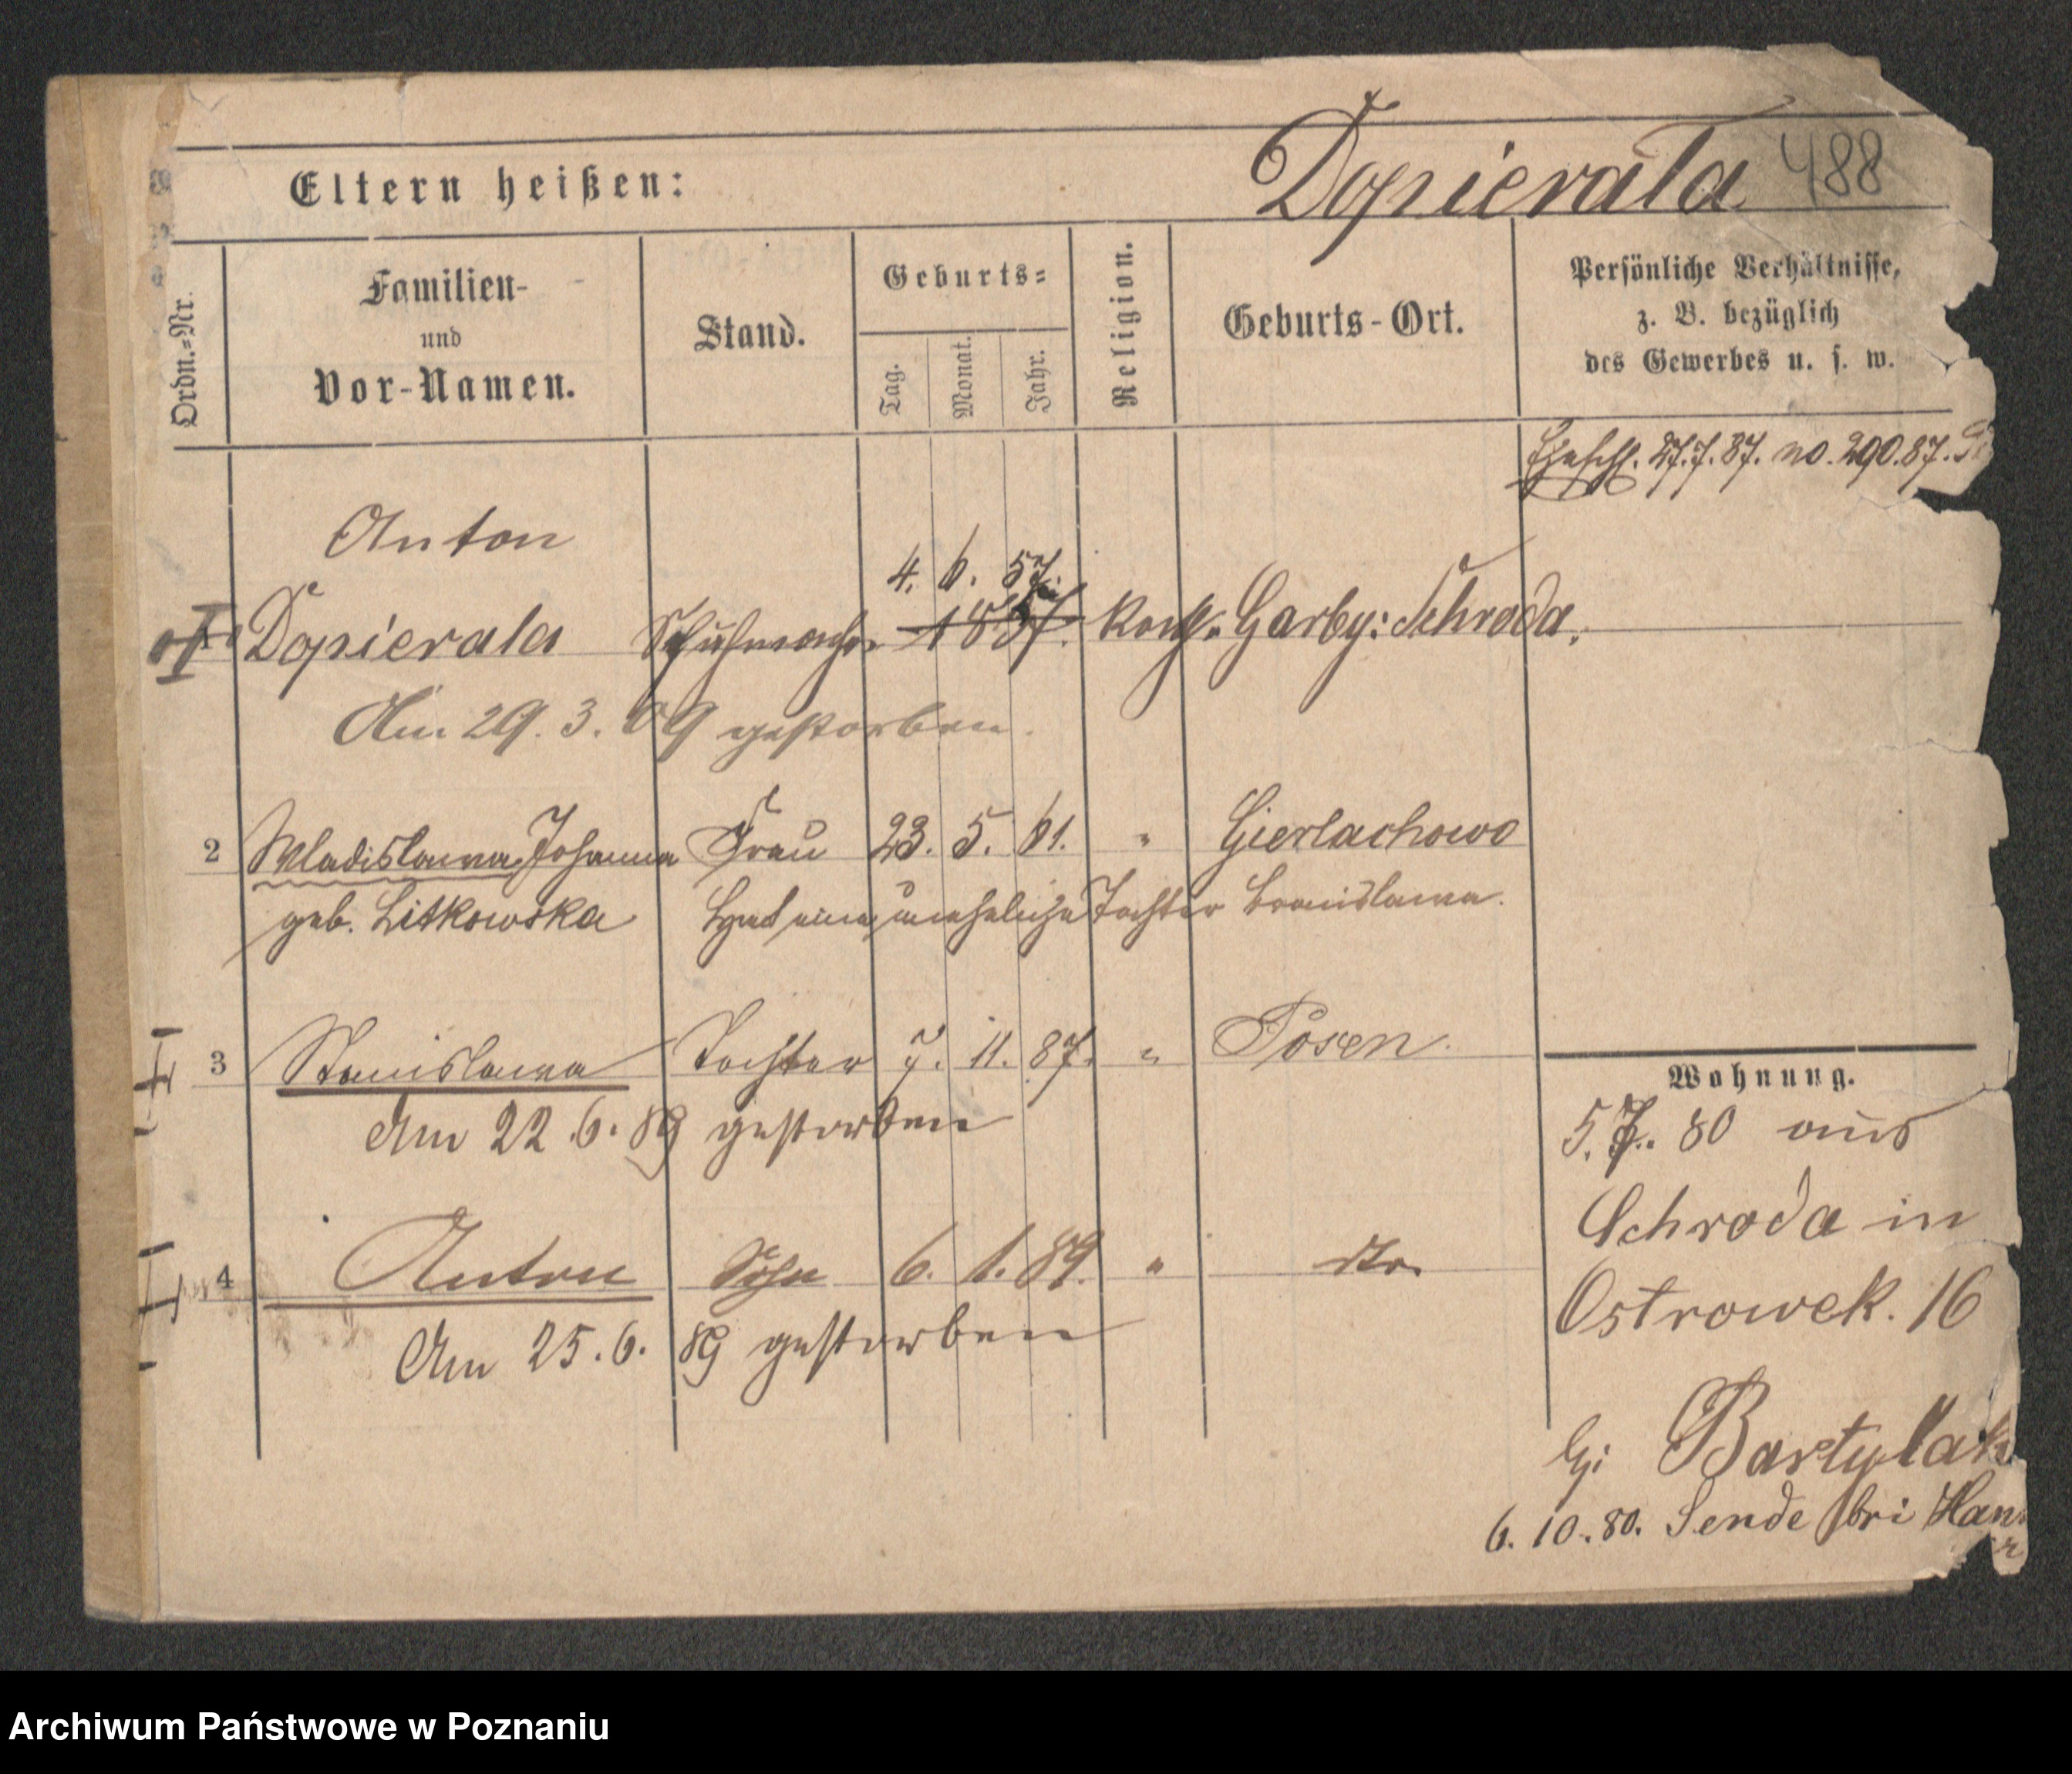 Eltern heißen:
Dopierala 488
Ordn.-Nr.
Familien-
und
Vor-Namen.
Stand.
Geburts-
Tag.
Monat.
Jahr.
Religion.
Geburts-Ort.
Persönliche Verhältnisse,
z. B. bezüglich
des Gewerbes u. s. w.
Eheschl. 27.7.87. no. 290.87.
Anton
4. 6. 57.
1 Dopierala Schuhmacher 1857. kath. Garby: Schroda.
Am 29. 3. 09 gestorben.
2 Wladislawa Johanna Frau 23. 5. 61. " Gierlachowo
geb. Litkowska Hat eine uneheliche Tochter Bronislawa.
3 Stanislawa Tochter 7. 11. 87. " Posen.
Am 22.6.89 gestorben
4 Anton Sohn 6. 1. 89. " dto.
Am 25.6.89 gestorben
Wohnung.
5.7. 80 aus
Schroda in
Ostrowek. 16
b/ Bartylak
6. 10. 80. Sende bei
Archiwum Państwowe w Poznaniu